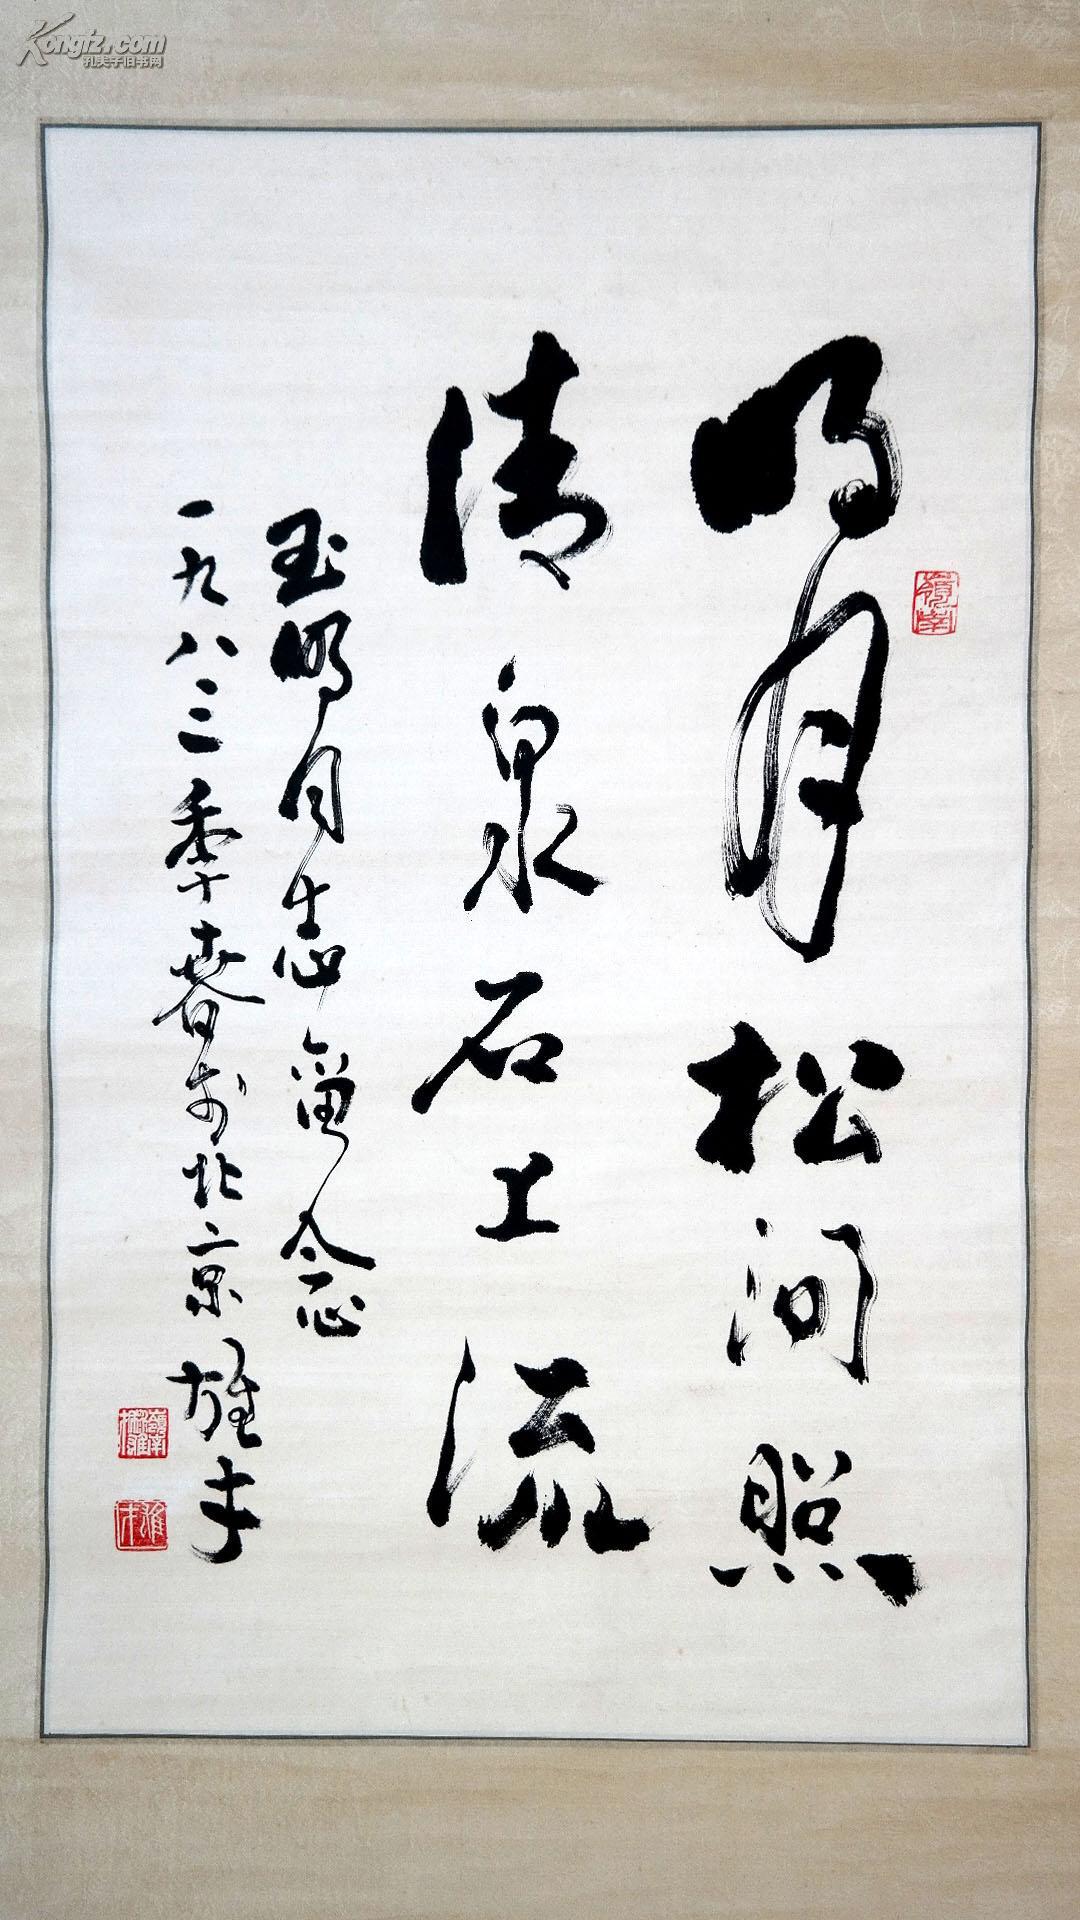 Kongfz.com
孔夫子旧书网
明月松间照
清泉石上流
玉明同志留念正
一九八三年春于北京雄才
嶺南